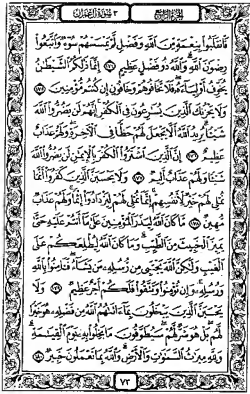 الجزء الرابع ٣ سورة آل عمران
فَٱنقَلَبُوا۟ بِنِعْمَةٍ مِّنَ ٱللَّهِ وَفَضْلٍ لَّمْ يَمْسَسْهُمْ سُوٓءٌ وَٱتَّبَعُوا۟
رِضْوَٰنَ ٱللَّهِ وَٱللَّهُ ذُو فَضْلٍ عَظِيمٍ ١٧٤ إِنَّمَا ذَٰلِكُمُ ٱلشَّيْطَٰنُ
يُخَوِّفُ أَوْلِيَآءَهُۥ فَلَا تَخَافُوهُمْ وَخَافُونِ إِن كُنتُم مُّؤْمِنِينَ ١٧٥
وَلَا يَحْزُنكَ ٱلَّذِينَ يُسَٰرِعُونَ فِى ٱلْكُفْرِ إِنَّهُمْ لَن يَضُرُّوا۟ ٱللَّهَ
شَيْـًٔا يُرِيدُ ٱللَّهُ أَلَّا يَجْعَلَ لَهُمْ حَظًّا فِى ٱلْـَٔاخِرَةِ وَلَهُمْ عَذَابٌ
عَظِيمٌ ١٧٦ إِنَّ ٱلَّذِينَ ٱشْتَرَوُا۟ ٱلْكُفْرَ بِٱلْإِيمَٰنِ لَن يَضُرُّوا۟ ٱللَّهَ
شَيْـًٔا وَلَهُمْ عَذَابٌ أَلِيمٌ ١٧٧ وَلَا يَحْسَبَنَّ ٱلَّذِينَ كَفَرُوٓا۟ أَنَّمَا
نُمْلِى لَهُمْ خَيْرٌ لِّأَنفُسِهِمْ إِنَّمَا نُمْلِى لَهُمْ لِيَزْدَادُوٓا۟ إِثْمًا وَلَهُمْ عَذَابٌ
مُّهِينٌ ١٧٨ مَّا كَانَ ٱللَّهُ لِيَذَرَ ٱلْمُؤْمِنِينَ عَلَىٰ مَآ أَنتُمْ عَلَيْهِ حَتَّىٰ
يَمِيزَ ٱلْخَبِيثَ مِنَ ٱلطَّيِّبِ وَمَا كَانَ ٱللَّهُ لِيُطْلِعَكُمْ عَلَى
ٱلْغَيْبِ وَلَٰكِنَّ ٱللَّهَ يَجْتَبِى مِن رُّسُلِهِۦ مَن يَشَآءُ فَـَٔامِنُوا۟ بِٱللَّهِ
وَرُسُلِهِۦ وَإِن تُؤْمِنُوا۟ وَتَتَّقُوا۟ فَلَكُمْ أَجْرٌ عَظِيمٌ ١٧٩ وَلَا
يَحْسَبَنَّ ٱلَّذِينَ يَبْخَلُونَ بِمَآ ءَاتَىٰهُمُ ٱللَّهُ مِن فَضْلِهِۦ هُوَ خَيْرًا
لَّهُم بَلْ هُوَ شَرٌّ لَّهُمْ سَيُطَوَّقُونَ مَا بَخِلُوا۟ بِهِۦ يَوْمَ ٱلْقِيَٰمَةِ
وَلِلَّهِ مِيرَٰثُ ٱلسَّمَٰوَٰتِ وَٱلْأَرْضِ وَٱللَّهُ بِمَا تَعْمَلُونَ خَبِيرٌ ١٨٠
٧٣